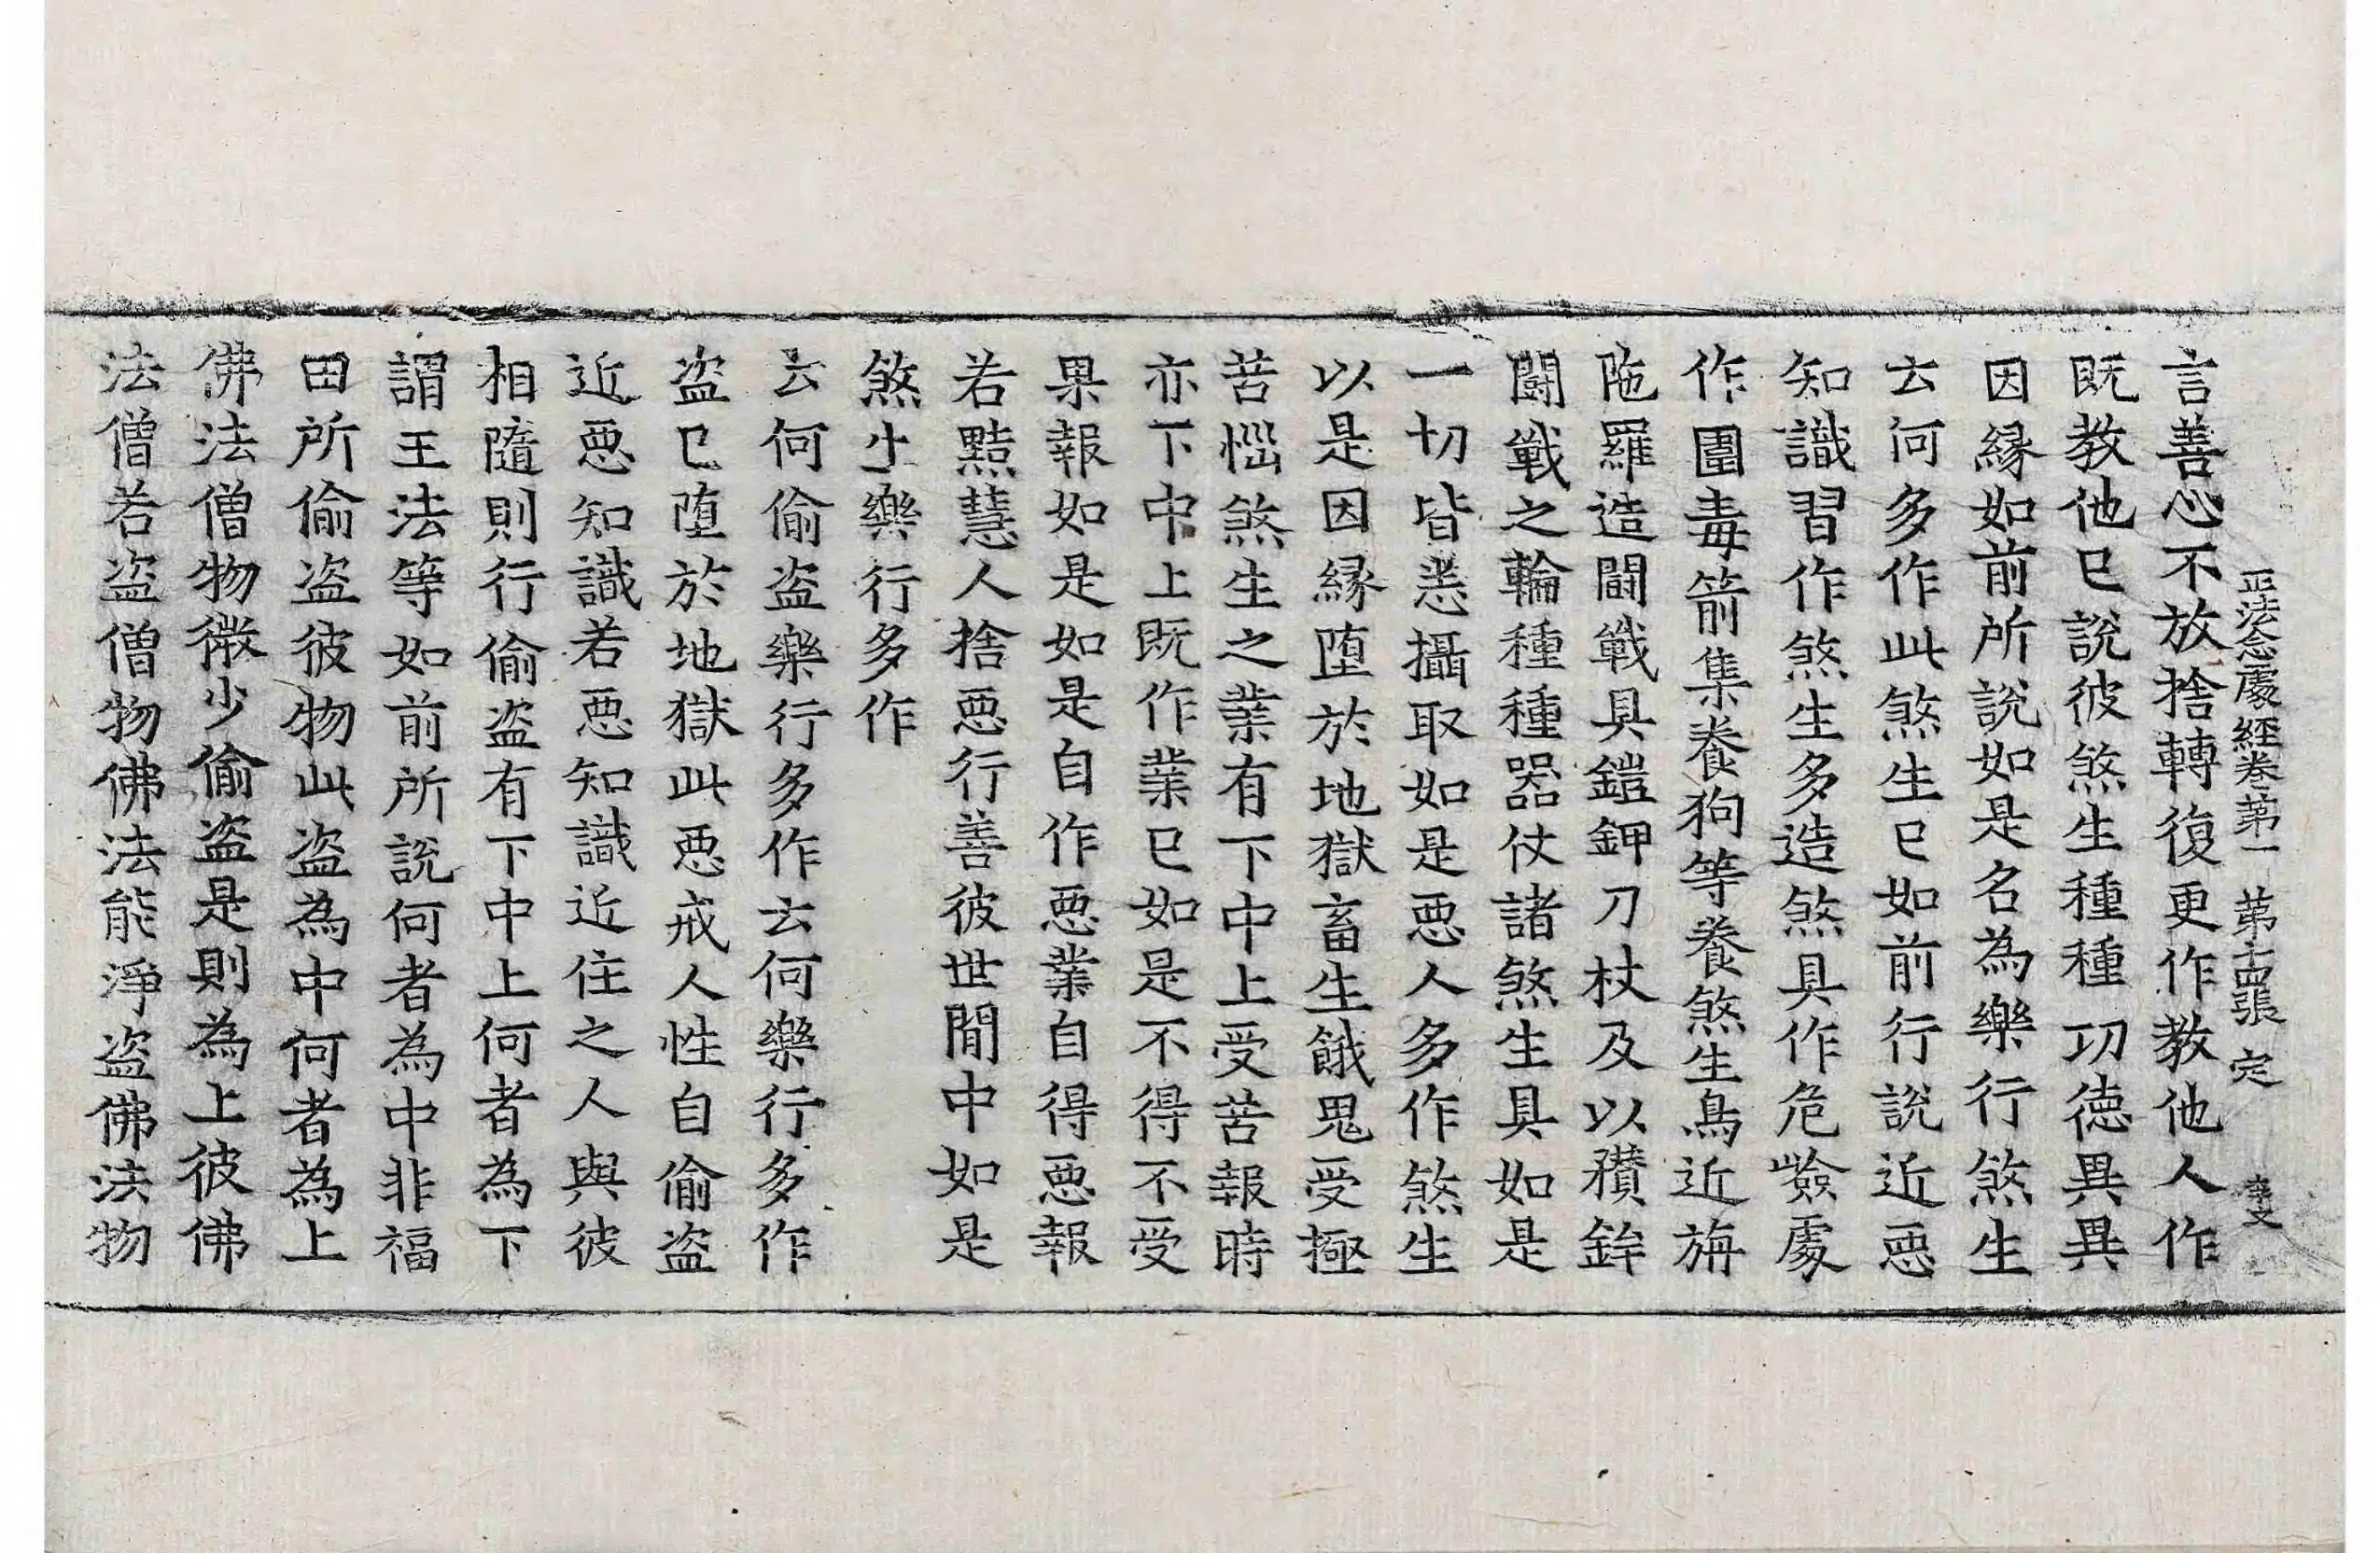 正法念處經卷第一 第十四張 定
言善心不放捨轉復更作教他人作
既教他已說彼煞生種種功德異異
因緣如前所說如是名為樂行煞生
云何多作此煞生已如前行說近惡
知識習作煞生多造煞具作危嶮處
作圍毒箭集養狗等養煞生鳥近旃
陁羅造鬪戰具鎧鉀刀杖及以穳鉾
鬪戰之輪種種器仗諸煞生具如是
一切皆悉攝取如是惡人多作煞生
以是因緣墮於地獄畜生餓鬼受極
苦惱煞生之業有下中上受苦報時
亦下中上既作業已如是不得不受
果報如是如是自作惡業自得惡報
若黠慧人捨惡行善彼世間中如是
煞生樂行多作
云何偷盜樂行多作云何樂行多作
盜已墮於地獄此惡戒人性自偷盜
近惡知識若惡知識近住之人與彼
相隨則行偷盜有下中上何者為下
謂王法等如前所說何者為中非福
田所偷盜彼物此盜為中何者為上
佛法僧物微少偷盜是則為上彼佛
法僧若盜僧物佛法能淨盜佛法物